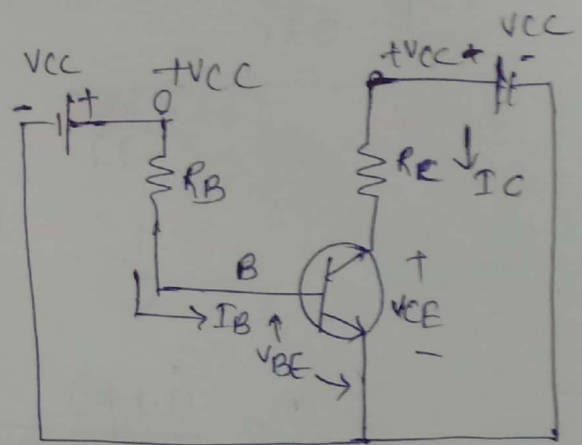 VCC
- +
+VCC
RB
B
IB
VBE
+VCC +
VCC
-
RC
IC
+
VCE
-